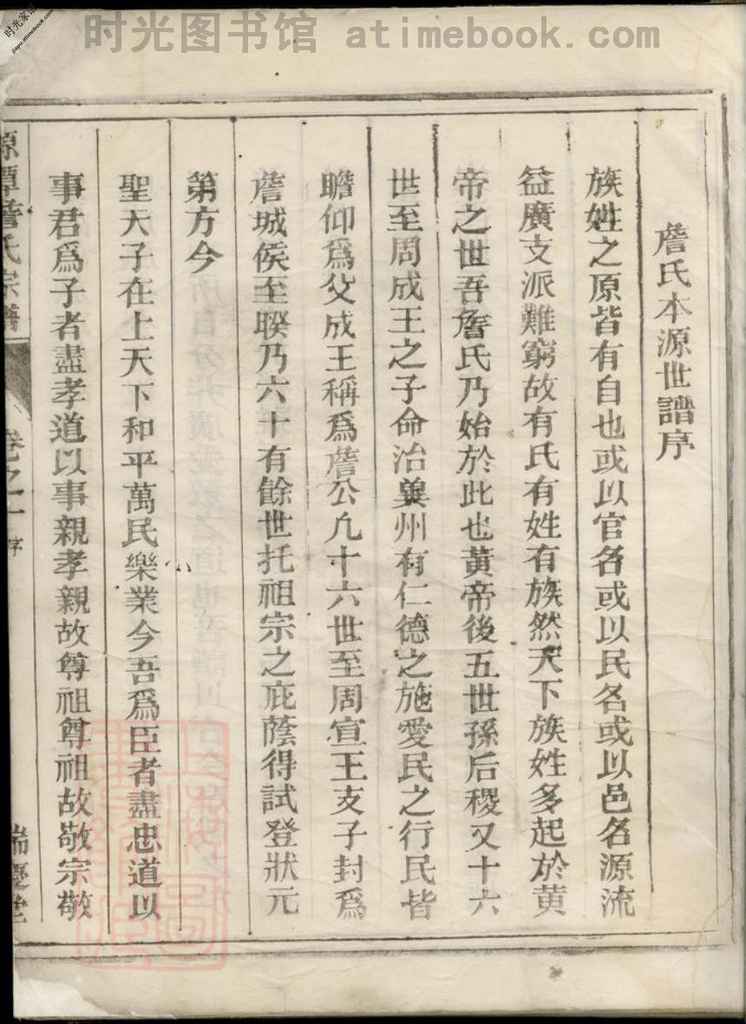 时光图书馆 atimebook.com
詹氏本源世譜序
族姓之原皆有自也或以官名或以民名或以邑名源流
益廣支派難窮故有氏有姓有族然天下族姓多起於黄
帝之世吾詹氏乃始於此也黄帝後五世孫后稷又十六
世至周成王之子命治冀州有仁德之施愛民之行民皆
瞻仰爲父成王稱爲詹公凢十六世至周宣王支子封爲
詹城侯至暌乃六十有餘世托祖宗之庇蔭得試登狀元
第方今
聖天子在上天下和平萬民樂業今吾爲臣者盡忠道以
事君爲子者盡孝道以事親孝親故尊祖尊祖故敬宗敬
源潭詹氏宗譜 卷之一 序 瑞慶堂